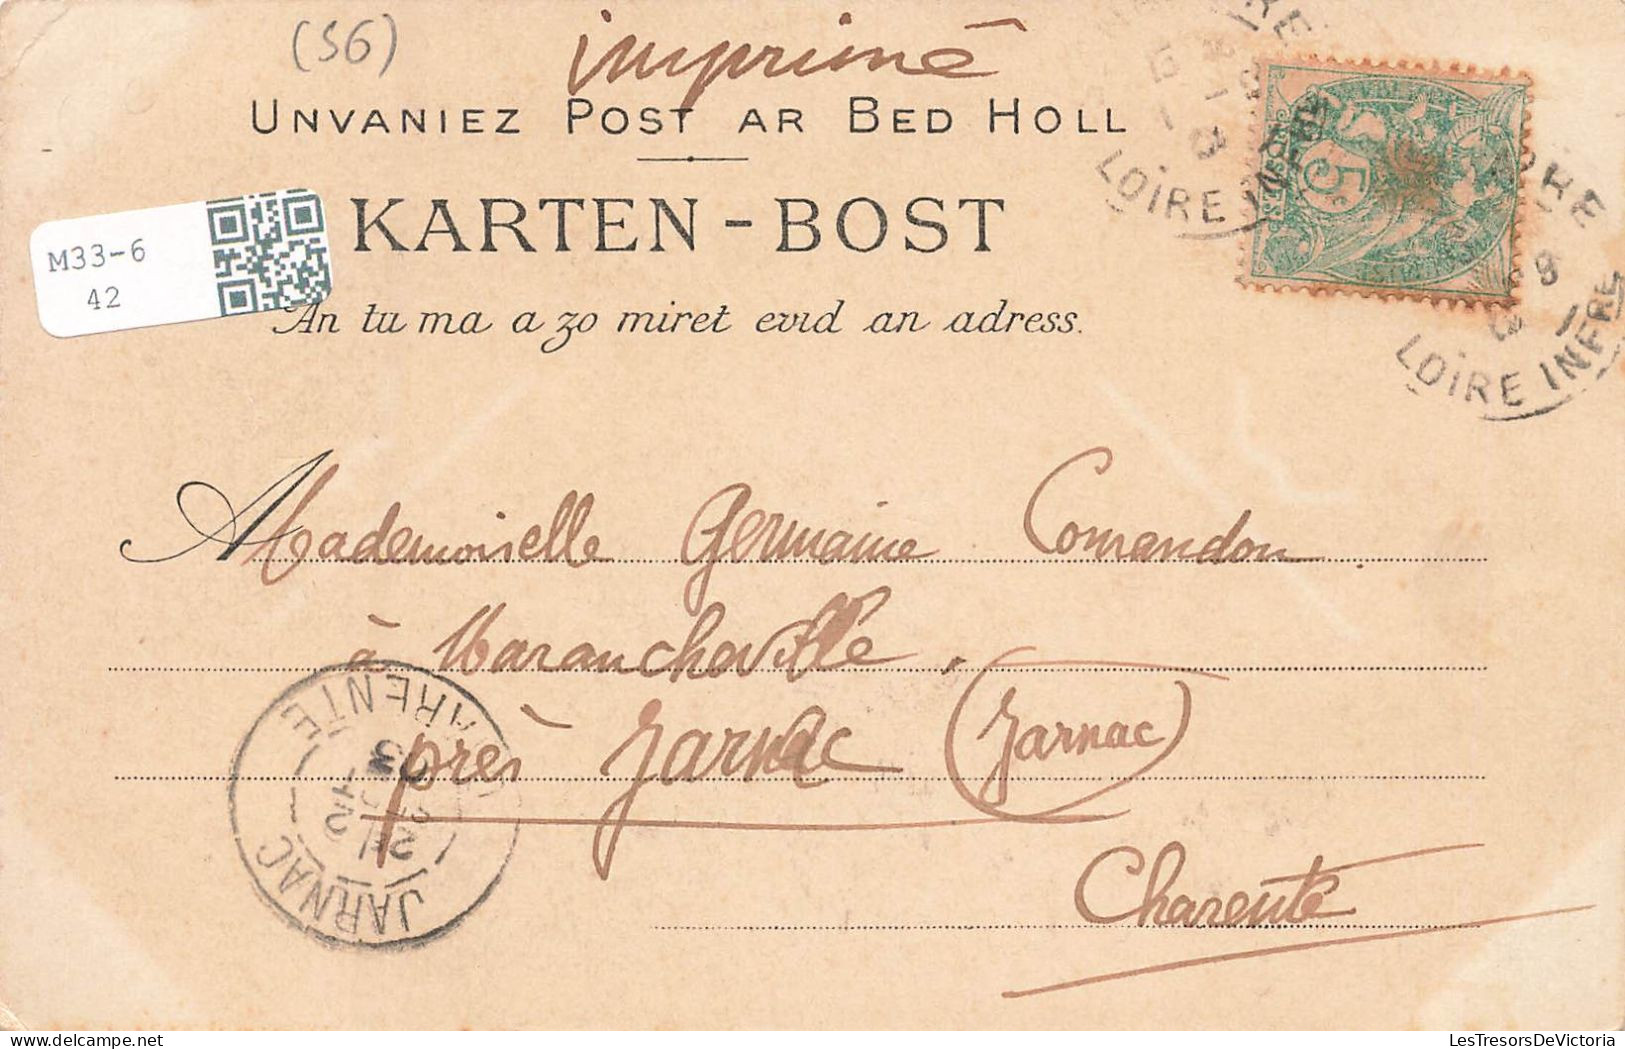 (56)
imprimé
UNVANIEZ POST AR BED HOLL
KARTEN-BOST
M33-6
42
An tu ma a zo miret evid an adress.
5
LOIRE INFRE
LOIRE INFRE
Mademoiselle Germaine Comandon
à Maranchaville,
près Jarnac (Jarnac)
Charente
JARNAC
03
LesTresorsDeVictoria